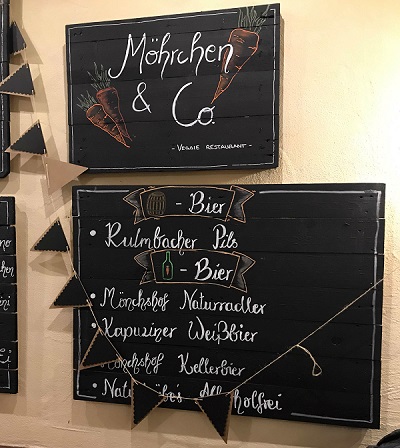 Möhrchen
& Co.
- VEGGIE RESTAURANT -
- Bier
• Kulmbacher Pils
- Bier
• Mönchshof Naturradler
• Kapuziner Weißbier
Mönchshof Kellerbier